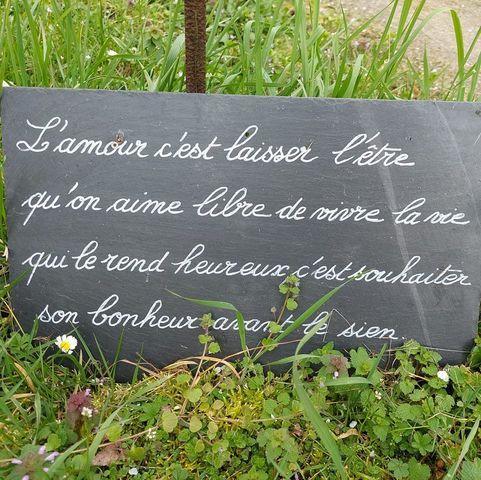 L'amour c'est laisser l'être
qu'on aime libre de vivre la vie
qui le rend heureux c'est souhaiter
son bonheur avant le sien.